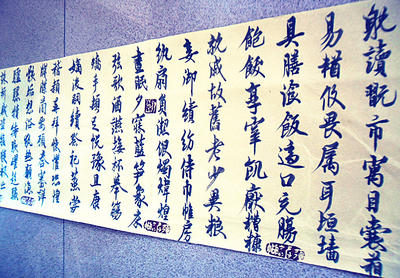 躭讀翫市寓目囊箱
易輶攸畏属耳垣墻
具膳湌飯適口充腸
飽飫享宰飢厭糟糠
親戚故舊老少異粮
妾御績紡侍巾帷房
紈扇員潔銀燭煒煌
晝眠夕寐藍笋象床
弦歌酒燕接杯舉觴
矯手頓足悅豫且康
嫡後嗣續祭祀蒸嘗
稽顙再拜悚懼恐惶
牋牒簡要顧答審詳
骸垢想浴執熱願凉
驢騾犢特駭躍超驤